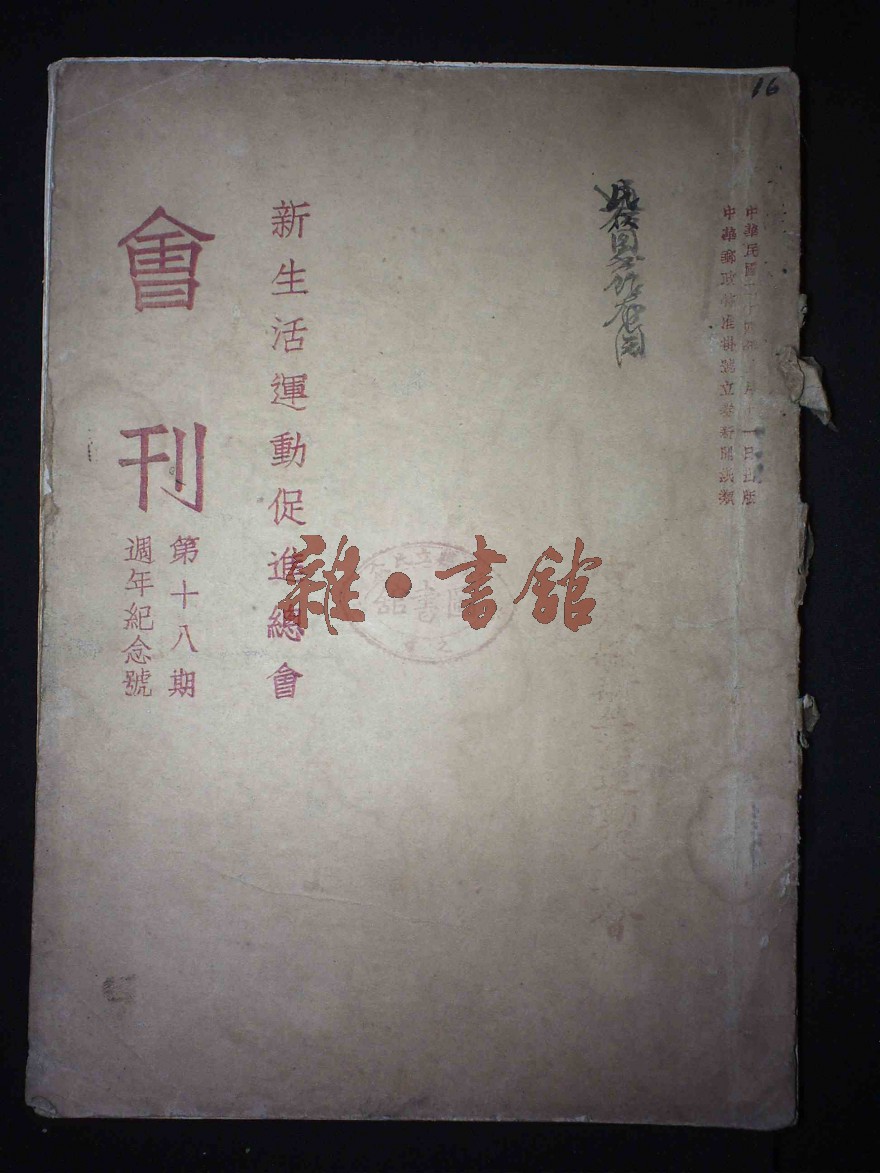 16
中華民國二十四年二月十一日出版
中華郵政特准掛號立券新聞紙類
新生活運動促進總會
會刊
第十八期
週年紀念號
雜·書館
圖書館